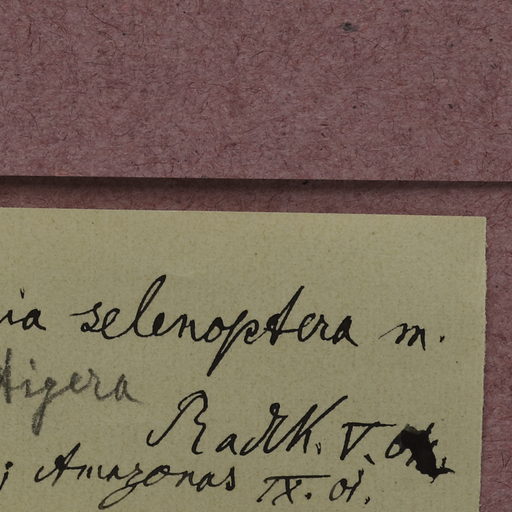 ia selenoptera m.
tigera
V.
; Amazonas IX. 01.